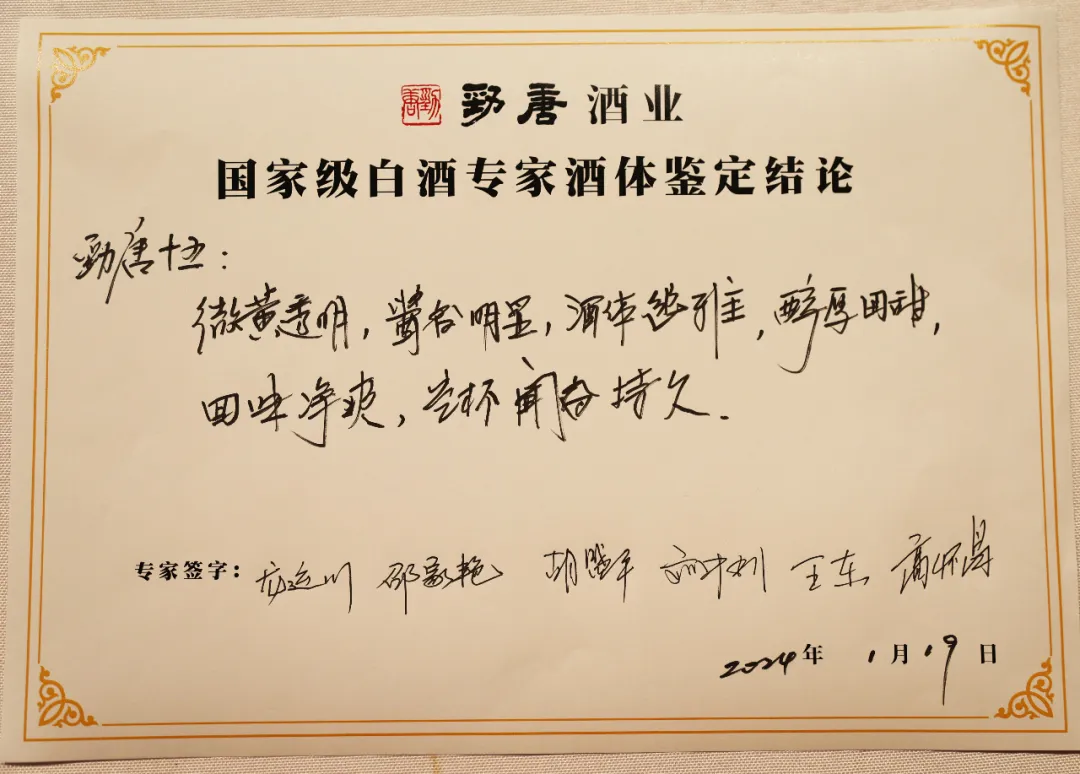 劲唐 勁唐酒业
国家级白酒专家酒体鉴定结论
勁唐十五：
微黄透明，酱香明显，酒体幽雅，醇厚回甜，
回味净爽，空杯闻香持久.
专家签字： 胡 王东
2024年 1月19日